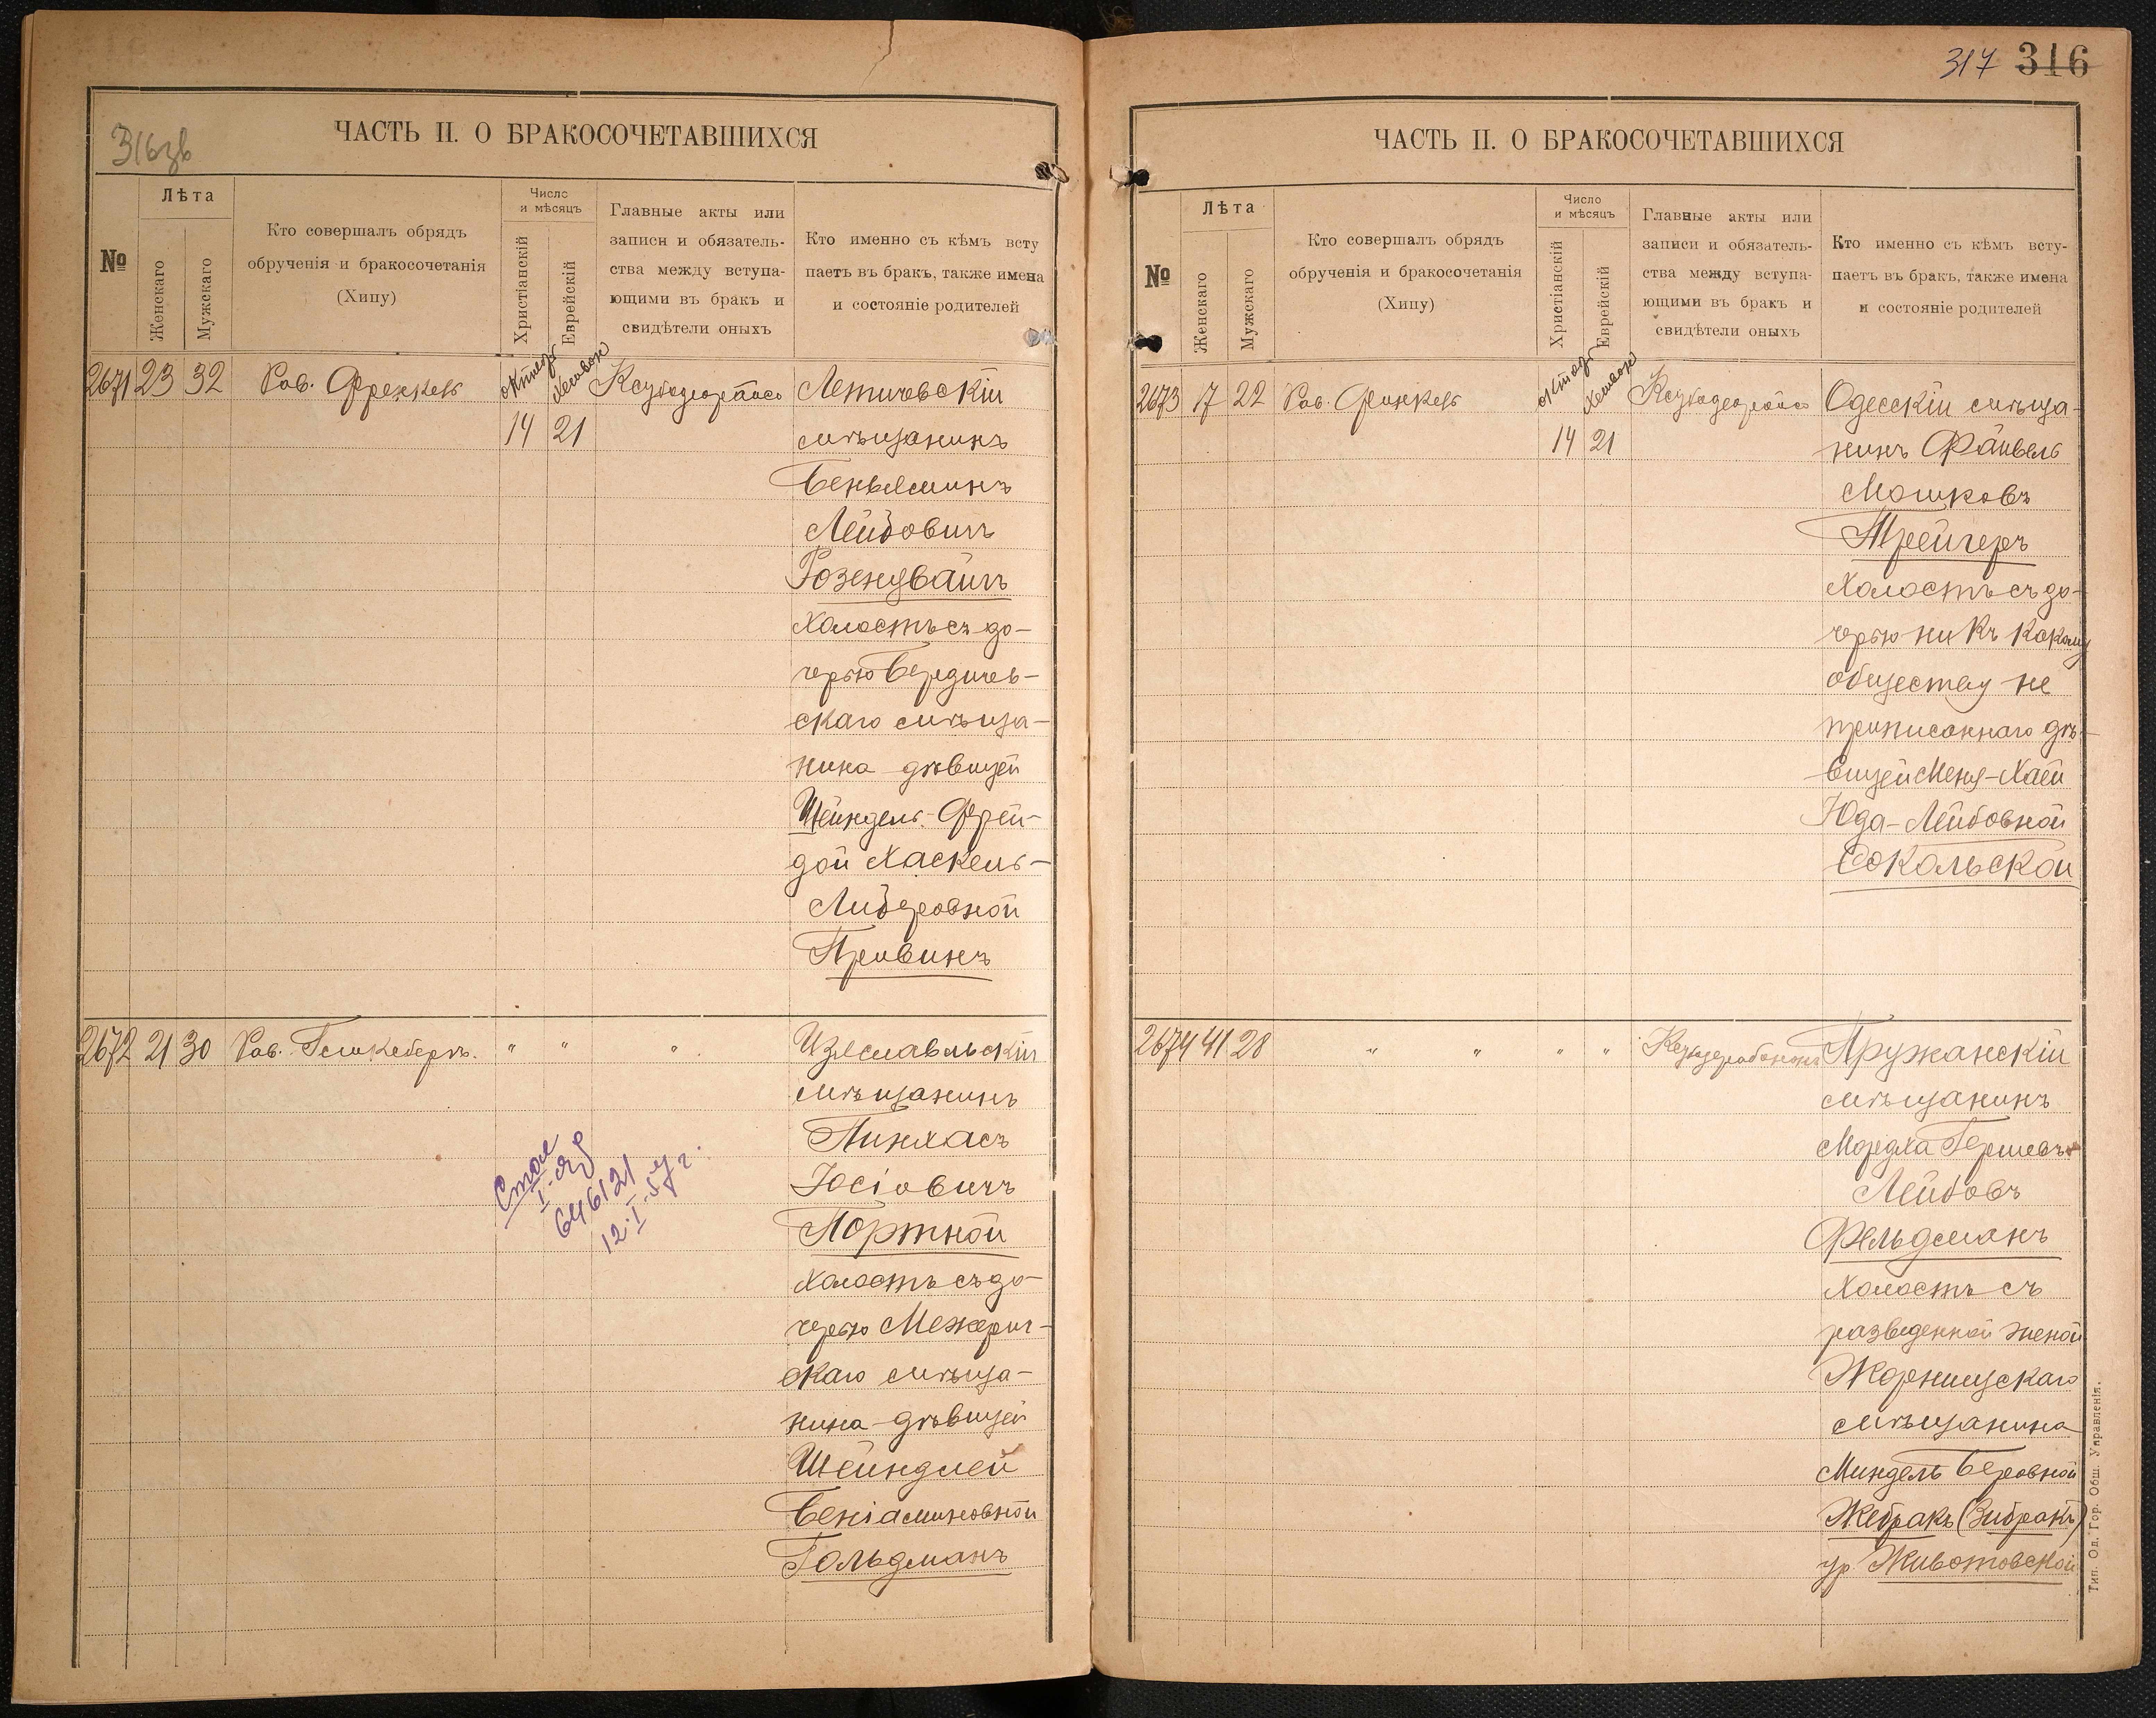 316зв
ЧАСТЬ II. О БРАКОСОЧЕТАВШИХСЯ
№
Лѣта
Женскаго
Мужскаго
Кто совершалъ обрядъ
обрученія и бракосочетанія
(Хипу)
Число
и мѣсяцъ
Христіанскій
Еврейскій
Главные акты или
записи и обязатель-
ства между вступа-
ющими въ бракъ и
свидѣтели оныхъ
Кто именно съ кѣмъ всту
паетъ въ бракъ, также имена
и состояніе родителей
2671 23 32 Рав. Френкель
14 21
Летичевскій
мѣщанинъ
Беньяминъ
Лейбовичъ
Розенцвайгъ
холостъ съ до-
черью Бердичев-
скаго мѣща-
нина дѣвицей
Шейндель-Фрей-
дой Хаскель-
Либеровной
Привинъ
2672 21 30 Рав. " " "
Изяславльскій
мѣщанинъ
Пинхасъ
Іосіовичъ
Портной
холостъ съ до-
черью Межерич-
скаго мѣща-
нина дѣвицей
Шейндлей
Беніаминовной
Гольдманъ
646121
12.I.57 г.
317 316
ЧАСТЬ II. О БРАКОСОЧЕТАВШИХСЯ
№
Лѣта
Женскаго
Мужскаго
Кто совершалъ обрядъ
обрученія и бракосочетанія
(Хипу)
Число
и мѣсяцъ
Христіанскій
Еврейскій
Главные акты или
записи и обязатель-
ства между вступа-
ющими въ бракъ и
свидѣтели оныхъ
Кто именно съ кѣмъ всту-
паетъ въ бракъ, также имена
и состояніе родителей
2673 17 22 Рав.
14 21
Одесскій мѣща-
нинъ Файвель
Мошковъ
Трейгеръ
холостъ съ до-
черью ни къ какому
обществу не
приписаннаго дѣ-
вицей Меня-Хаей
Юда-Лейбовной
Сокольской
2674 41 28 " " " "
Пружанскій
мѣщанинъ
Мордха Гершевъ
Лейбовъ
Фельдманъ
холостъ съ
разведенной женой
Жорнищскаго
мѣщанина
Миндель Беровной
Жебракъ (Зибракъ)
ур. Животовской
Тип. Од. Гор. Общ. Управленія.